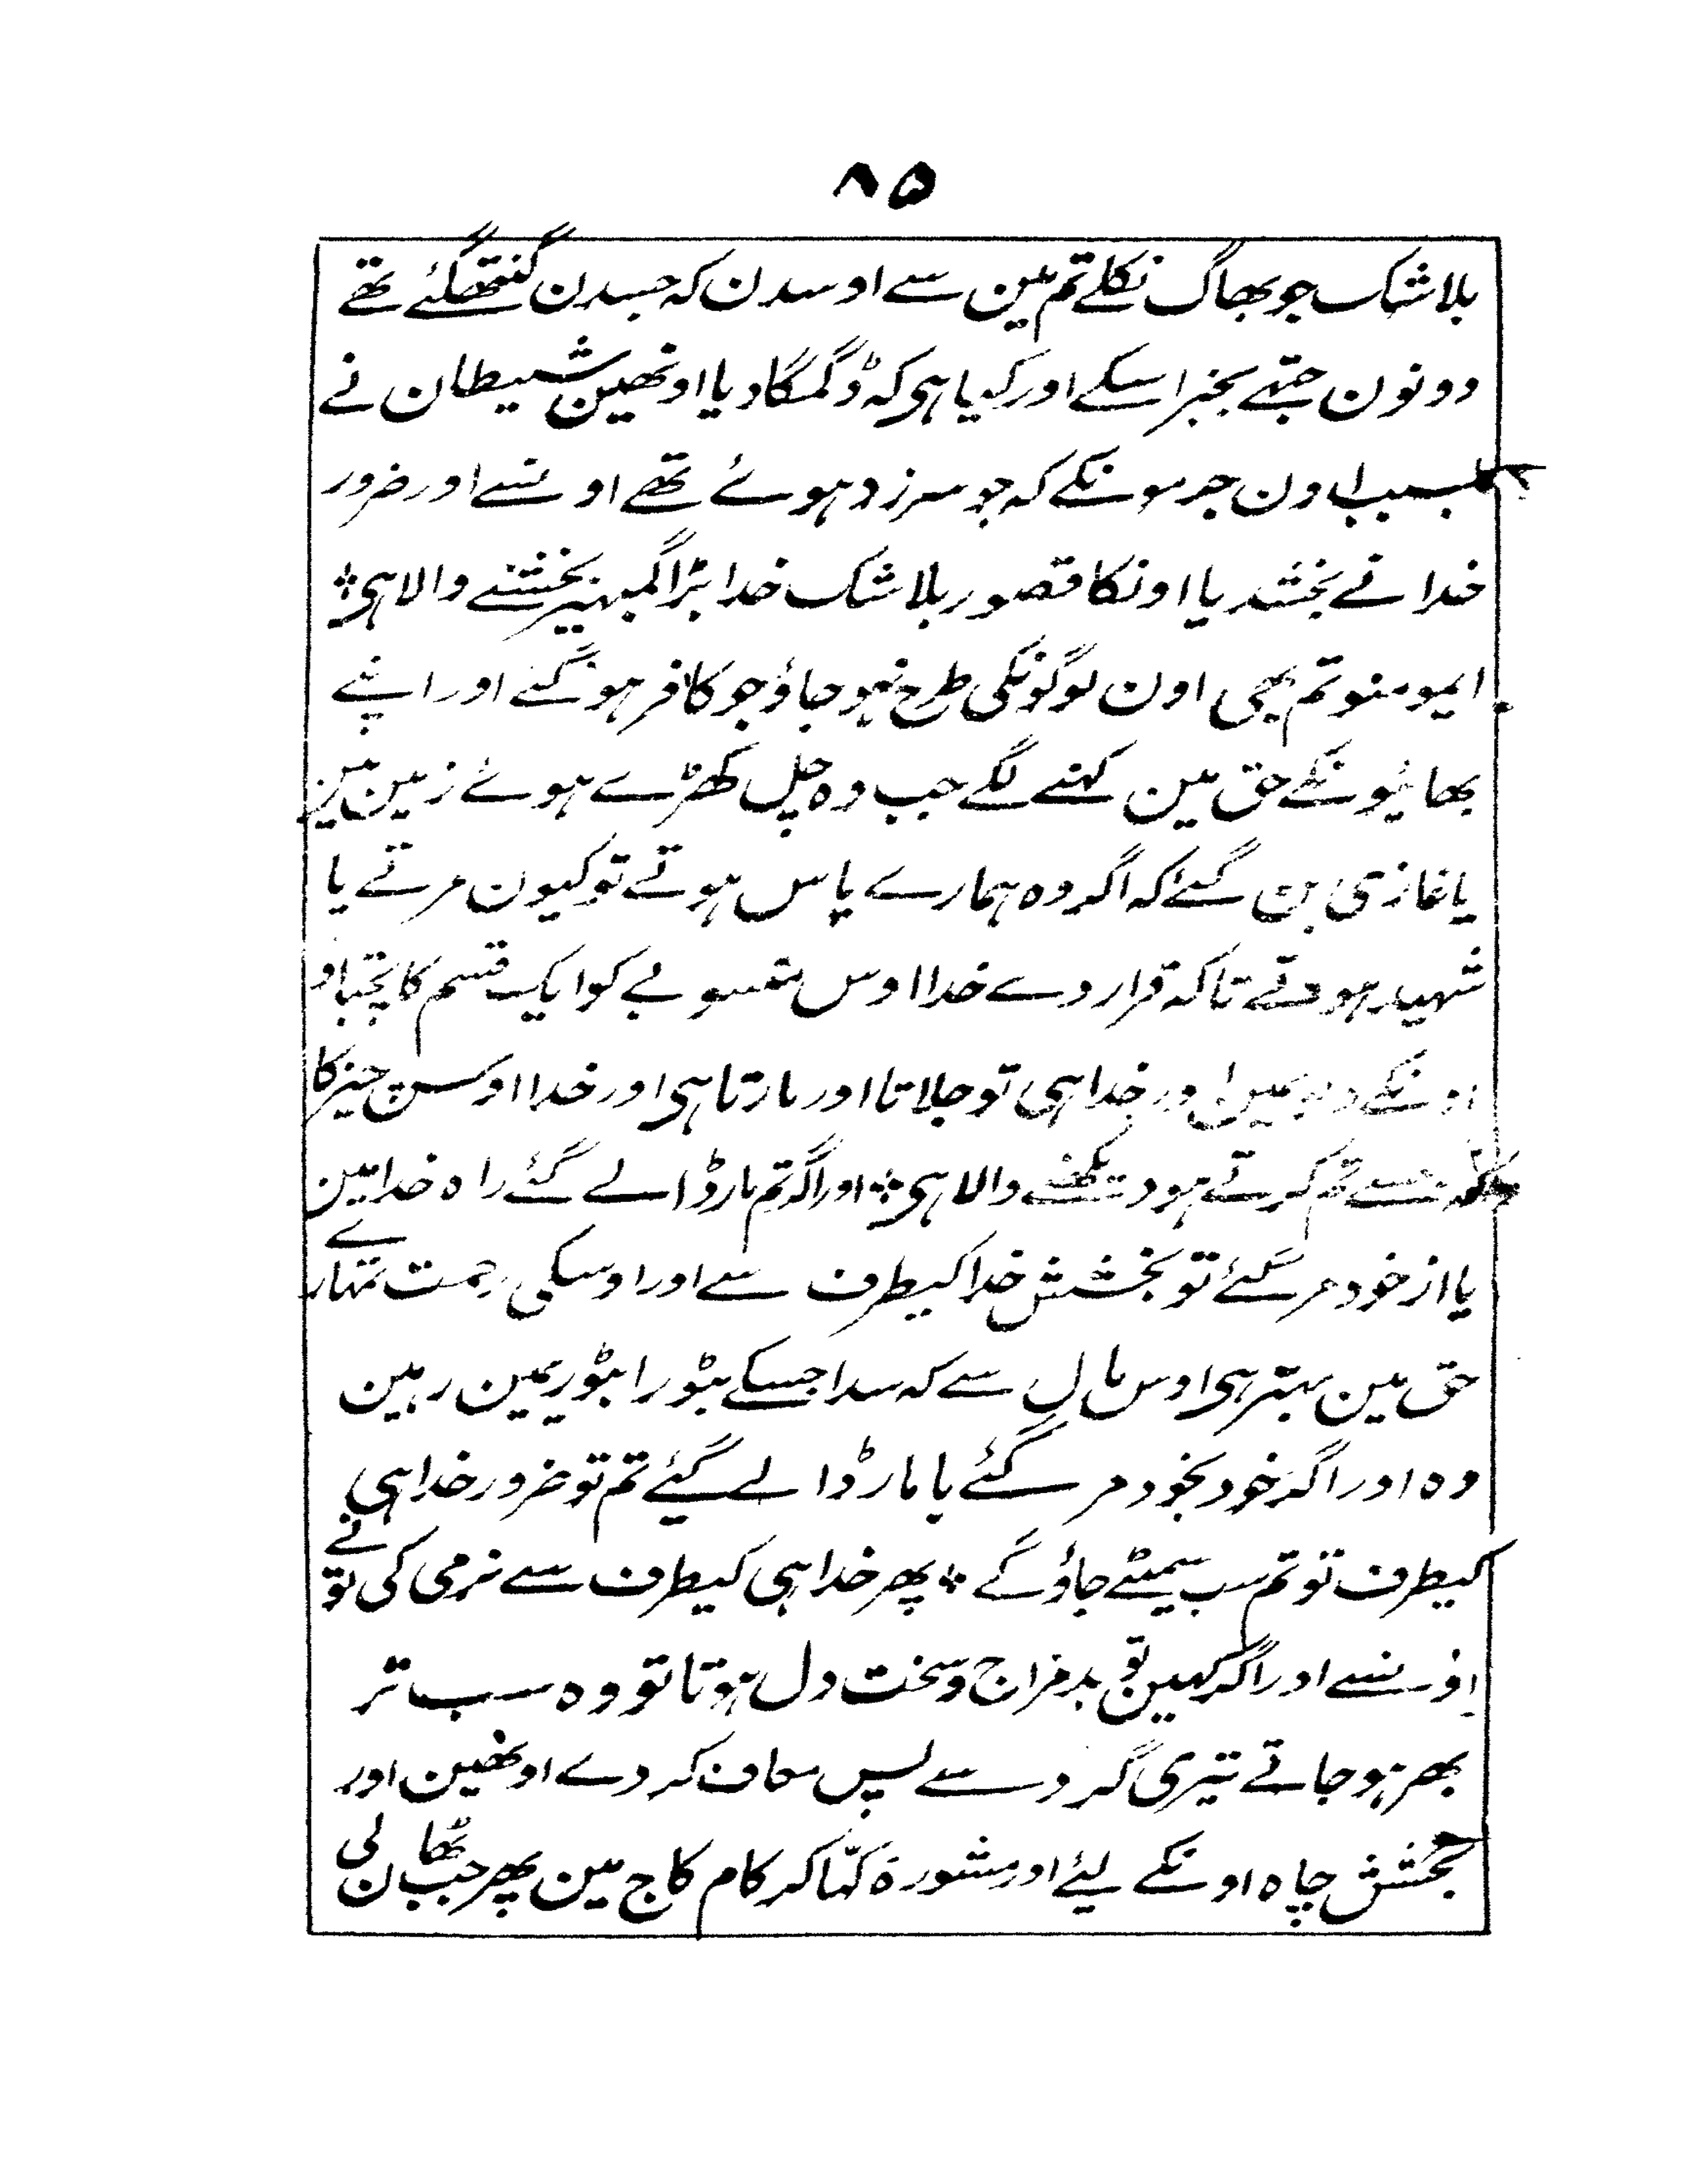 ۸۵
بلاشک جو بھاگ نکلے تم مین سے اوسدن کہ جسدن گتھگئے تھے
دونون جتھے بجز اسکے اور کیا ہی کہ ڈگمگا دیا اونھین شیطان نے
بسبب اون جرمونکے کہ جو سرزد ہوئے تھے اونسے اور ضرور
خدا نے بخشدیا اونکا قصور بلاشک خدا بڑا گمبھیر بخشنے والا ہی ⁘
ایمومنو تم بھی اون لوگونکی طرح نہو جاؤ جو کافر ہو گئے اور اپنے
بھائیونکے حق مین کہنے لگے جب وہ چل کھڑے ہوئے زمین مین
یا غازی بن گئے کہ اگر وہ ہمارے پاس ہوتے تو کیون مرتے یا
شہید ہوتے تاکہ قرار دے خدا اوس منسوبے کو ایک قسم کا پچتاو
اونکے دلونمین اور خدا ہی تو جلاتا اور مارتا ہی اور خدا اوس چیز کا
کہ جسے تم کرتے ہو دیکھنے والا ہی ⁘ اور اگر تم مار ڈالے گئے راہ خدا مین
یا از خود مر گئے تو بخشش خدا کیطرف سے اور اوسکی رحمت تمہارے
حق مین بہتر ہی اوس مال سے کہ سدا جسکے بٹورا بٹوریمین رہین
وہ اور اگر خود بخود مر گئے یا مار ڈالے گئے تم تو ضرور خدا ہی
کیطرف تو تم سب سمیٹے جاؤ گے ⁘ پھر خدا ہی کیطرف سے نرمی کی تو نے
اونسے اور اگر کہین تو بد مزاج و سخت دل ہوتا تو وہ سب تر
بھر ہو جاتے تیری گرد سے پس معاف کر دے اونھین اور
بخشش چاہ اونکے لیئے اور مشورۃ کہا کر کام کاج مین پھر جب ٹھان لی